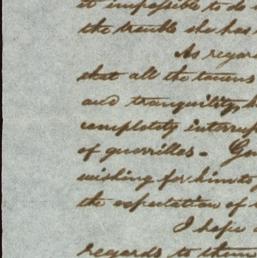 it impossible to do
the trouble she has
As regar
that all the towns
and tranquility, h
completely interrup
of guerrillas. Ge
wishing for him to
the expectation of
I hope
regards to them